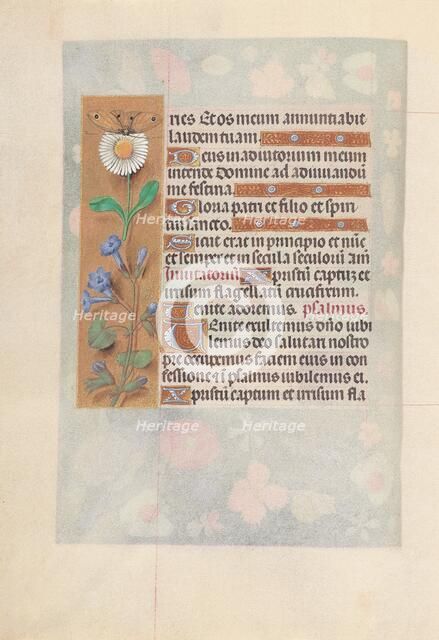 ries Et os meum annuntiabit
laudem tuam
Deus in adiutorium meum
intende Domine ad adiuuandū
me festina
Gloria patri et filio et spiri
tui sancto.
Sicut erat in principio et nūc
et semper et in secula seculorū am̄
Inuitatoriū Xpristū captū et
irrisum flagellatū crucifixum.
Uenite adoremus. psalmus.
Uenite exultemus dn̄o iubi
lemus deo salutari nostro
pre occupemus faciem eius in con
fessione et ī psalmis iubilemus ei.
Xpristū captum et irrisum fla
Heritage Heritage
Heritage Heritage Heritage
Heritage Heritage Heritage